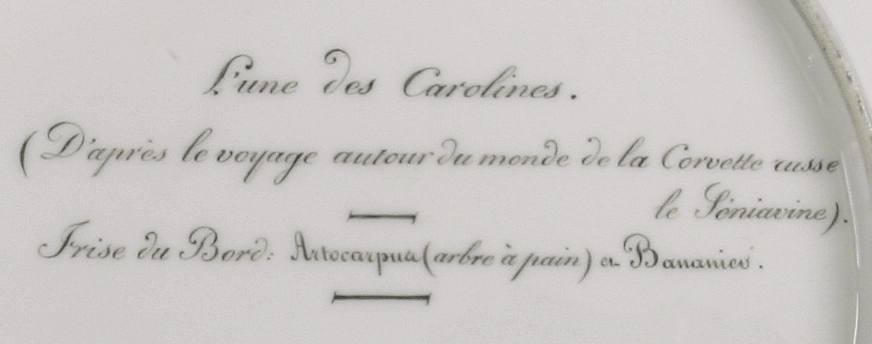 L'une des Carolines.
(D'après le voyage autour du monde de la Corvette russe
le Séniavine).
Frise du Bord: Artocarpus (arbre à pain) et Bananier.